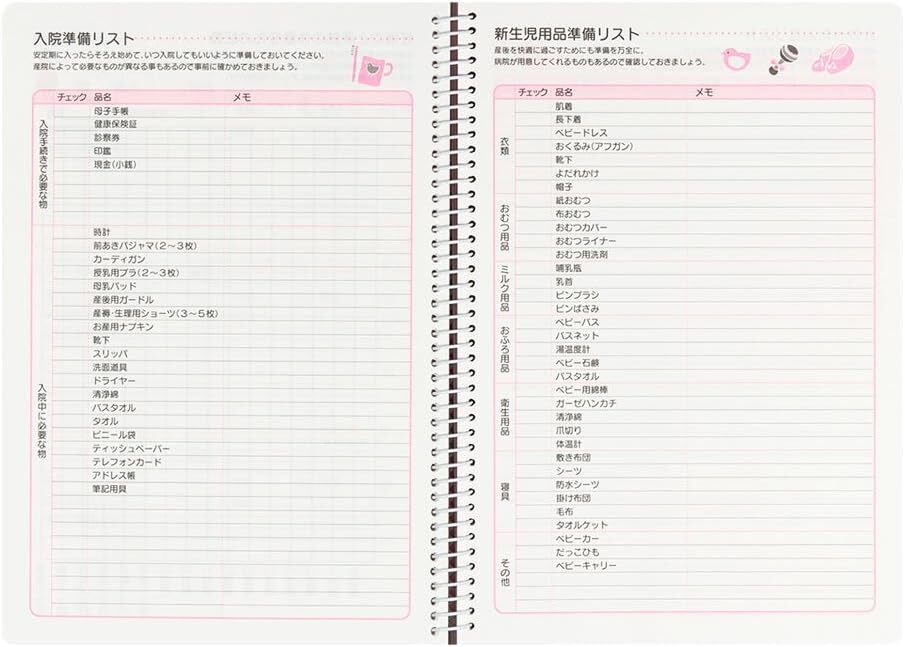 入院準備リスト
安定期に入ったらそろえ始めて、いつ入院してもいいように準備しておいてください。
産院によって必要なものが異なる事もあるので事前に確かめておきましょう。
チェック 品名 メモ
入院手続きで必要な物
母子手帳
健康保険証
診察券
印鑑
現金(小銭)
入院中に必要な物
時計
前あきパジャマ(2〜3枚)
カーディガン
授乳用ブラ(2〜3枚)
母乳パッド
産後用ガードル
産褥・生理用ショーツ(3〜5枚)
お産用ナプキン
靴下
スリッパ
洗面道具
ドライヤー
清浄綿
バスタオル
タオル
ビニール袋
ティッシュペーパー
テレフォンカード
アドレス帳
筆記用具
新生児用品準備リスト
産後を快適に過ごすためにも準備を万全に。
病院が用意してくれるものもあるので確認しておきましょう。
チェック 品名 メモ
衣類
肌着
長下着
ベビードレス
おくるみ(アフガン)
靴下
よだれかけ
帽子
おむつ用品
紙おむつ
布おむつ
おむつカバー
おむつライナー
おむつ用洗剤
ミルク用品
哺乳瓶
乳首
ビンブラシ
ビンばさみ
おふろ用品
ベビーバス
バスネット
湯温度計
ベビー石鹸
バスタオル
衛生用品
ベビー用綿棒
ガーゼハンカチ
清浄綿
爪切り
体温計
寝具
敷き布団
シーツ
防水シーツ
掛け布団
毛布
タオルケット
その他
ベビーカー
だっこひも
ベビーキャリー